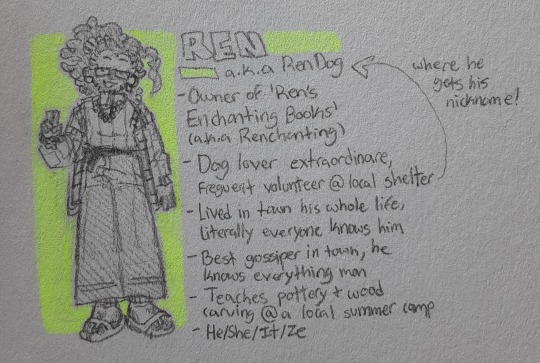 REN
a.k.a RenDog
where he
gets his
nickname!
- Owner of 'Ren's
Enchanting Books'
(a.k.a Renchanting)
- Dog lover extraordinare,
frequent volunteer @ local shelter
- Lived in town his whole life,
literally everyone knows him
- Best gossiper in town, he
knows everything man
- Teaches pottery + wood
carving @ a local summer camp
- He/She/It/Ze